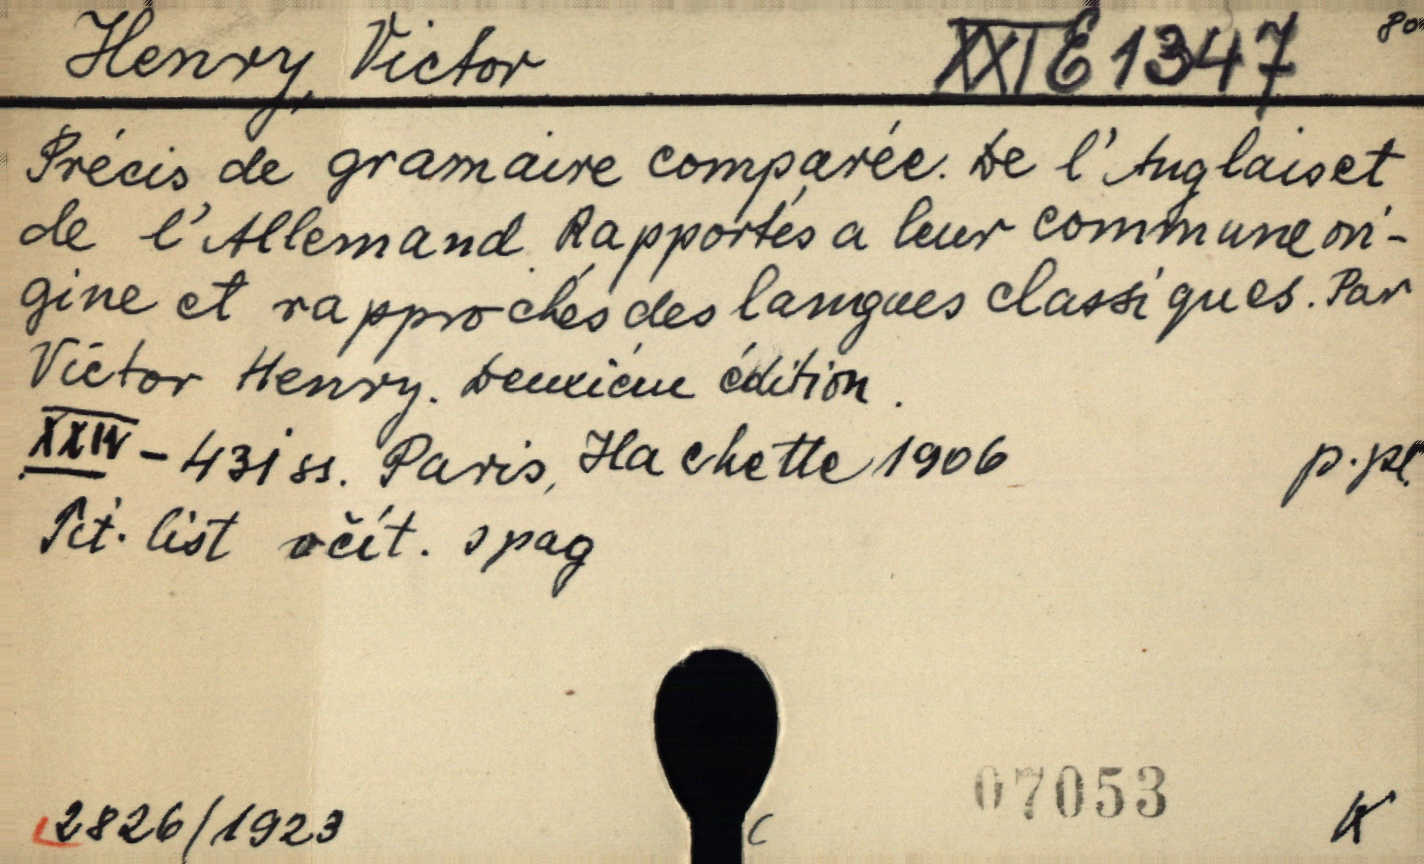 Henry, Victor XXI E 1347 80
Précis de gramaire comparée. De l'Anglais et
de l'Allemand Rapportés a leur commune ori-
gine et rapprochés des langues classiques. Par
Victor Henry. Deuxiéme édition.
XXIV - 431 ss. Paris, Hachette 1906 p.pl.
Tit. list očít. s pag
07053
2826/1923 C K